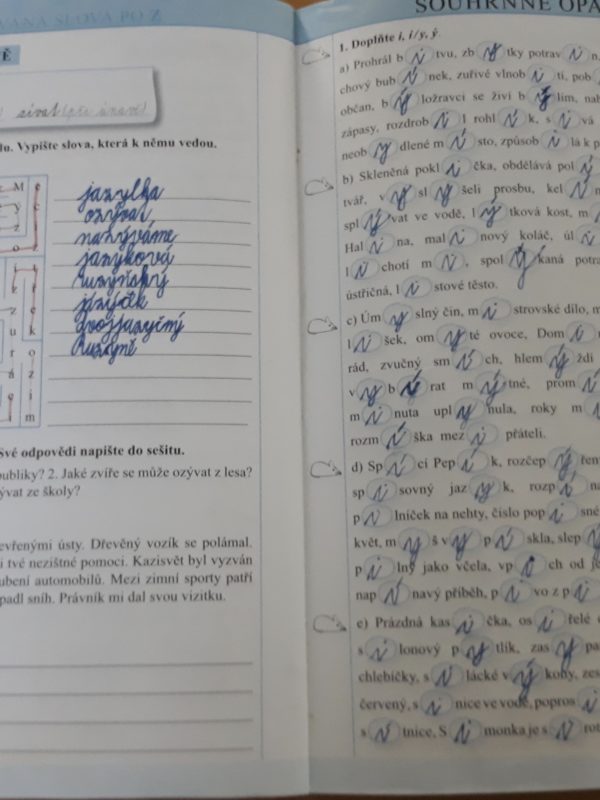 VANÁ SLOVA PO Z
sívat
Vypište slova, která k němu vedou.
jazylka
ozývat
nazýváme
jazyková
Ruzyňský
jazýček
dvojjazyčný
Ruzyně
Své odpovědi napište do sešitu.
publiky? 2. Jaké zvíře se může ozývat z lesa?
ývat ze školy?
evřenými ústy. Dřevěný vozík se polámal.
i tvé nezištné pomoci. Kazisvět byl vyzván
ubení automobilů. Mezi zimní sporty patří
padl sníh. Právník mi dal svou vizitku.
SOUHRNNÉ OPA
1. Doplňte i, í/y, ý.
a) Prohrál b i tvu, zb y tky potrav i n,
chový bub í nek, zuřivě vlnob i tí, pob
občan, b ý ložravci se živí b ý lím, nab
zápasy, rozdrob i l rohl í k, s i vá
neob y dlené m í sto, způsob i lá k p
b) Skleněná pokl i čka, obdělává pol
tvář, v y sl y šeli prosbu, kel í m
spl ý vat ve vodě, l ý tková kost, m
Hal i na, mal i nový koláč, úl
l i chotí m i, spol y kaná potra
ústřičná, l i stové těsto.
c) Úm y slný čin, m i strovské dílo, m
l i šek, om y té ovoce, Dom i n
rád, zvučný sm í ch, hlem ý ždí
v y b í rat m ý tné, prom í
m i nuta upl y nula, roky m
rozm í ška mez i přáteli.
d) Sp í cí Pep í k, rozčep ý řen
sp i sovný jaz y k, rozp i na
p i lníček na nehty, číslo pop i sné
květ, m y š v y p í skla, slep
p i lný jako včela, vp i ch od je
nap í navý příběh, p i vo z p i
e) Prázdná kas i čka, os i řelé
s i lonový p y tlík, zas y pa
chlebíčky, s i lácké v ý kony, zes
červený, s i nice ve vodě, popros i
s í tnice, S i monka je s i rot